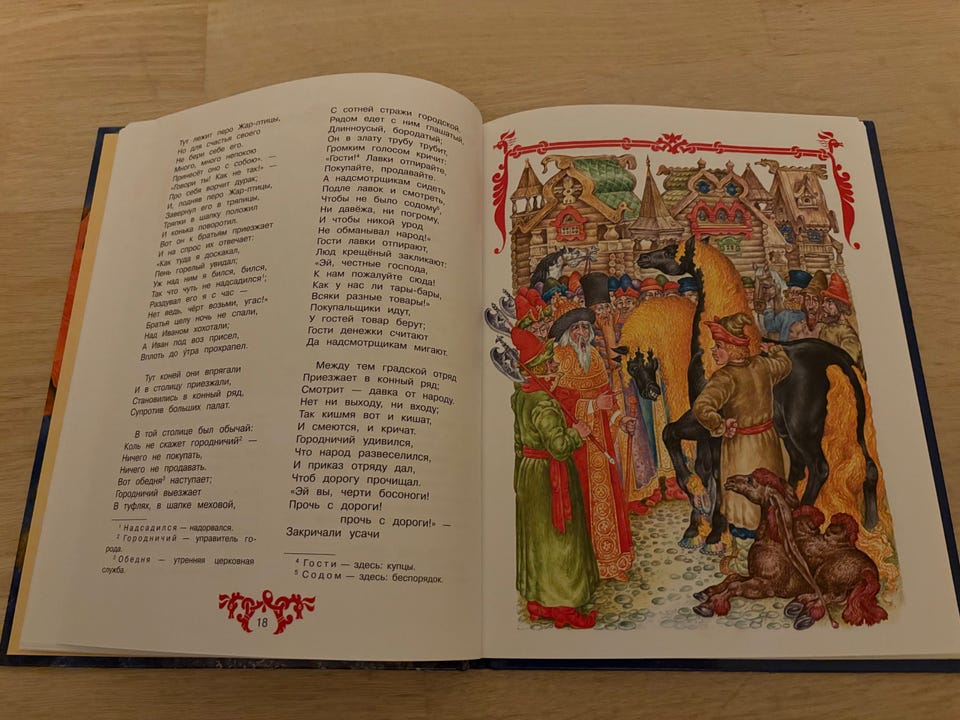 Тут лежит перо Жар-птицы,
Но для счастья своего
Не бери себе его.
Много, много непокою
Принесёт оно с собою». —
«Говори ты! Как не так!» —
Про себя ворчит дурак;
И, подняв перо Жар-птицы,
Завернул его в тряпицы,
Тряпки в шапку положил
И конька поворотил.
Вот он к братьям приезжает
И на спрос их отвечает:
«Как туда я доскакал,
Пень горелый увидал;
Уж над ним я бился, бился,
Так что чуть не надсадился¹;
Раздувал его я с час —
Нет ведь, чёрт возьми, угас!»
Братья целу ночь не спали,
Над Иваном хохотали;
А Иван под воз присел,
Вплоть до у́тра прохрапел.
Тут коней они впрягали
И в столицу приезжали,
Становились в конный ряд,
Супротив больших палат.
В той столице был обычай:
Коль не скажет городничий² —
Ничего не покупать,
Ничего не продавать.
Вот обедня³ наступает;
Городничий выезжает
В туфлях, в шапке меховой,
¹ Надсадился — надорвался.
² Городничий — управитель го-
рода.
³ Обедня — утренняя церковная
служба.
18
С сотней стражи городской.
Рядом едет с ним глашатый,
Длинноусый, бородатый;
Он в злату трубу трубит,
Громким голосом кричит:
«Гости!⁴ Лавки отпирайте,
Покупайте, продавайте.
А надсмотрщикам сидеть
Подле лавок и смотреть,
Чтобы не было содому⁵,
Ни давёжа, ни погрому,
И чтобы никой урод
Не обманывал народ!»
Гости лавки отпирают,
Люд крещёный закликают:
«Эй, честные господа,
К нам пожалуйте сюда!
Как у нас ли тары-бары,
Всяки разные товары!»
Покупальщики идут,
У гостей товар берут;
Гости денежки считают
Да надсмотрщикам мигают.
Между тем градской отряд
Приезжает в конный ряд;
Смотрит — давка от народу.
Нет ни выходу, ни входу;
Так кишмя вот и кишат,
И смеются, и кричат.
Городничий удивился,
Что народ развеселился,
И приказ отряду дал,
Чтоб дорогу прочищал.
«Эй вы, черти босоноги!
Прочь с дороги!
прочь с дороги!» —
Закричали усачи
⁴ Гости — здесь: купцы.
⁵ Содом — здесь: беспорядок.